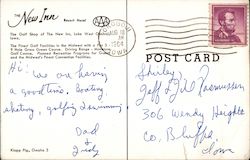 The New Inn Resort Hotel
The Golf Shop at The New Inn, Lake West
Iowa.
The Finest Golf Facilities in the Midwest with a Par 3 -
9 Hole Green Grass Course. Driving Range -
Golf Course. Planned Recreation Programs
and the Midwest's Finest Convention Facilities.
AUG 10
PM
1964
IOWA
POST CARD
Hi!
We are having
a good time. Boating
skating, golfing & swimming.
Dad
&
Judy
Shirley
Jeff & Jill Rasmussen
306 Wendy Heights
Co. Bluffs,
Iowa